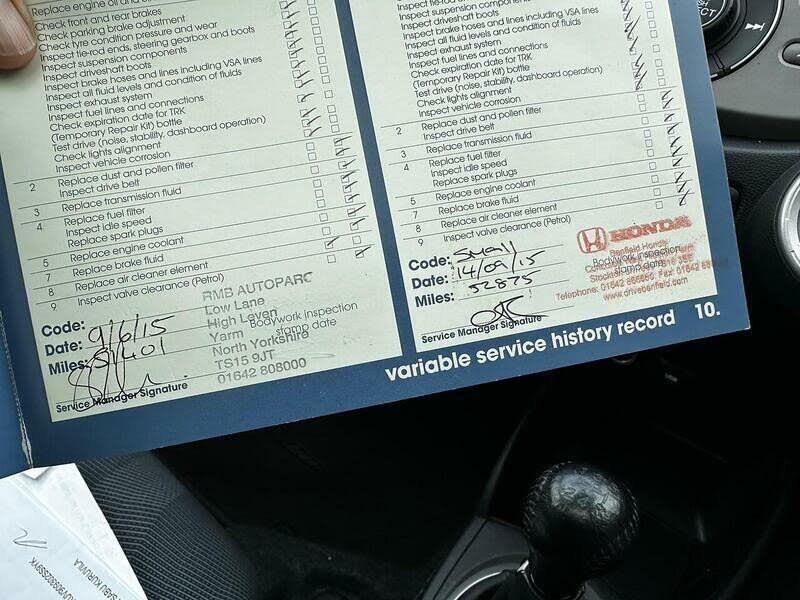 Replace engine oil and
Check front and rear brakes
Check parking brake adjustment
Check tyre condition pressure and wear
Inspect tie-rod ends, steering gearbox and boots
Inspect suspension components
Inspect driveshaft boots
Inspect brake hoses and lines including VSA lines
Inspect all fluid levels and condition of fluids
Inspect exhaust system
Inspect fuel lines and connections
Check expiration date for TRK
(Temporary Repair Kit) bottle
Test drive (noise, stability, dashboard operation)
Check lights alignment
Inspect vehicle corrosion
2 Replace dust and pollen filter
Inspect drive belt
3 Replace transmission fluid
4 Replace fuel filter
Inspect idle speed
Replace spark plugs
5 Replace engine coolant
7 Replace brake fluid
8 Replace air cleaner element
9 Inspect valve clearance (Petrol)
Code:
Date: 9/6/15
Miles: 51401
Service Manager Signature
RMB AUTOPARC
Low Lane
High Leven
Yarm
North Yorkshire
TS15 9JT
01642 808000
Bodywork inspection
stamp date
Inspect suspension components
Inspect driveshaft boots
Inspect brake hoses and lines including VSA lines
Inspect all fluid levels and condition of fluids
Inspect exhaust system
Inspect fuel lines and connections
Check expiration date for TRK
(Temporary Repair Kit) bottle
Test drive (noise, stability, dashboard operation)
Check lights alignment
Inspect vehicle corrosion
2 Replace dust and pollen filter
Inspect drive belt
3 Replace transmission fluid
4 Replace fuel filter
Inspect idle speed
Replace spark plugs
5 Replace engine coolant
7 Replace brake fluid
8 Replace air cleaner element
9 Inspect valve clearance (Petrol)
Code:
Date: 14/09/15
Miles: 52875
Service Manager Signature
HONDA
Benfield Honda
Bodywork inspection
stamp date
Telephone: 01642
www.drivebenfield.com
variable service history record 10.
KURUVILA